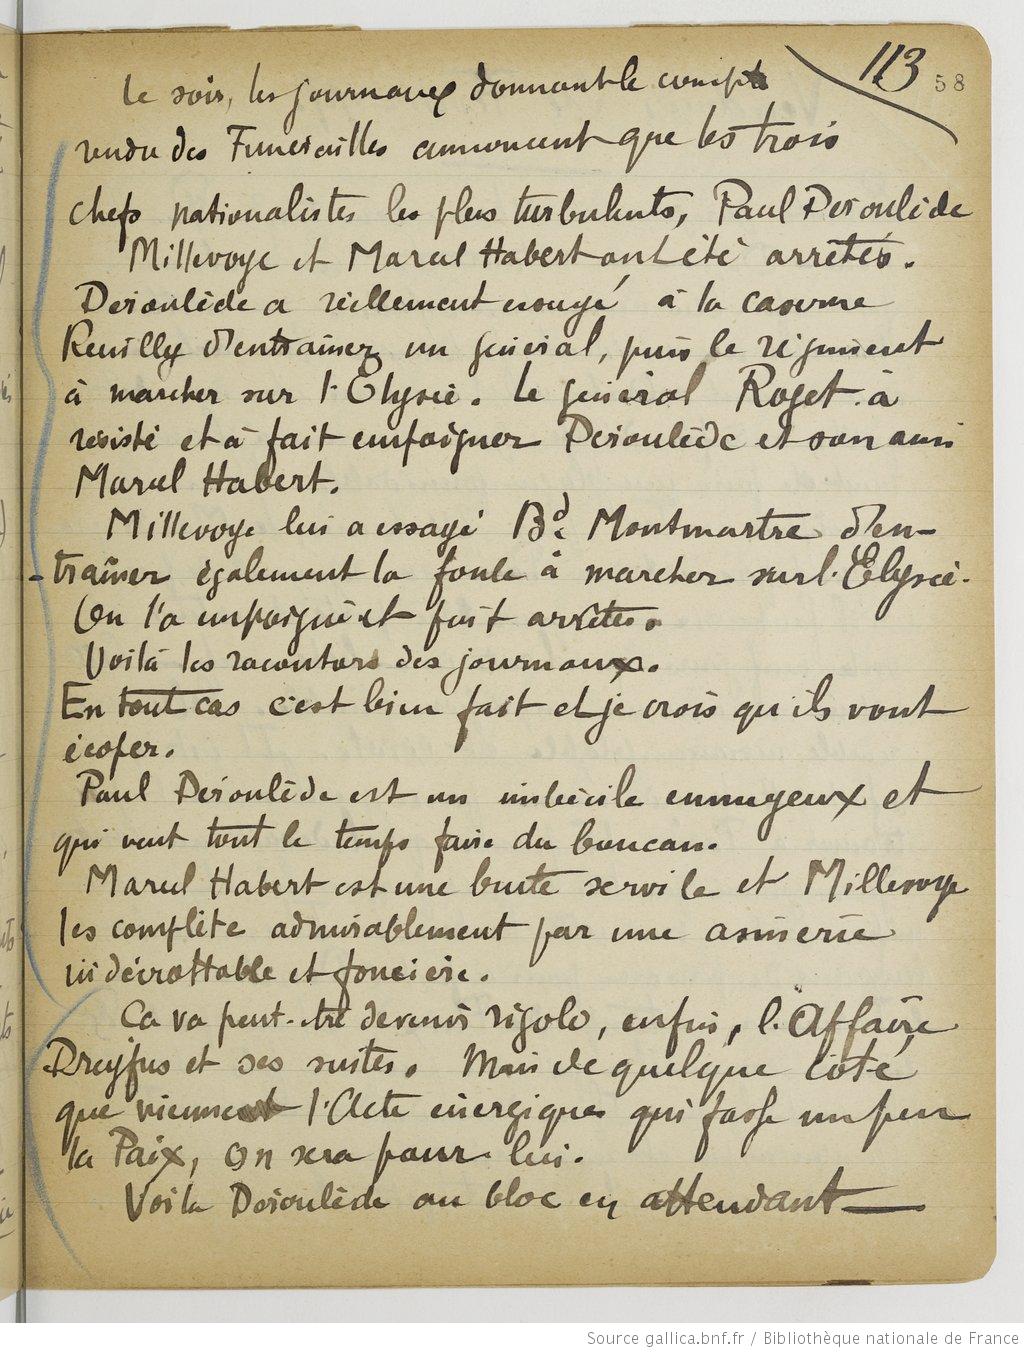 113
58
Le soir, les journaux donnant le compte
rendu des Funérailles annoncent que les trois
chefs nationalistes les plus turbulents, Paul Déroulède
Millevoye et Marcel Habert ont été arrêtés.
Déroulède a réellement essayé à la caserne
Reuilly d'entraîner un général, puis le régiment
à marcher sur l'Elysée. Le général Roget a
résisté et a fait empoigner Déroulède et son ami
Marcel Habert.
Millevoye lui a essayé Bd Montmartre d'en-
-traîner également la foule à marcher sur l'Elysée.
On l'a empoigné et fait arrêter.
Voilà les racontars des journaux.
En tout cas c'est bien fait et je crois qu'ils vont
écoper.
Paul Déroulède est un imbécile ennuyeux et
qui veut tout le temps faire du boucan.
Marcel Habert est une brute servile et Millevoye
les complète admirablement par une asinerie
indécrottable et foncière.
Ca va peut-être devenir rigolo, enfin, l'Affaire
Dreyfus et ses suites. Mais de quelque côté
que vienne l'Acte énergique qui fasse un peu
la Paix, on sera pour lui.
Voila Déroulède au bloc en attendant —
Source gallica.bnf.fr / Bibliothèque nationale de France